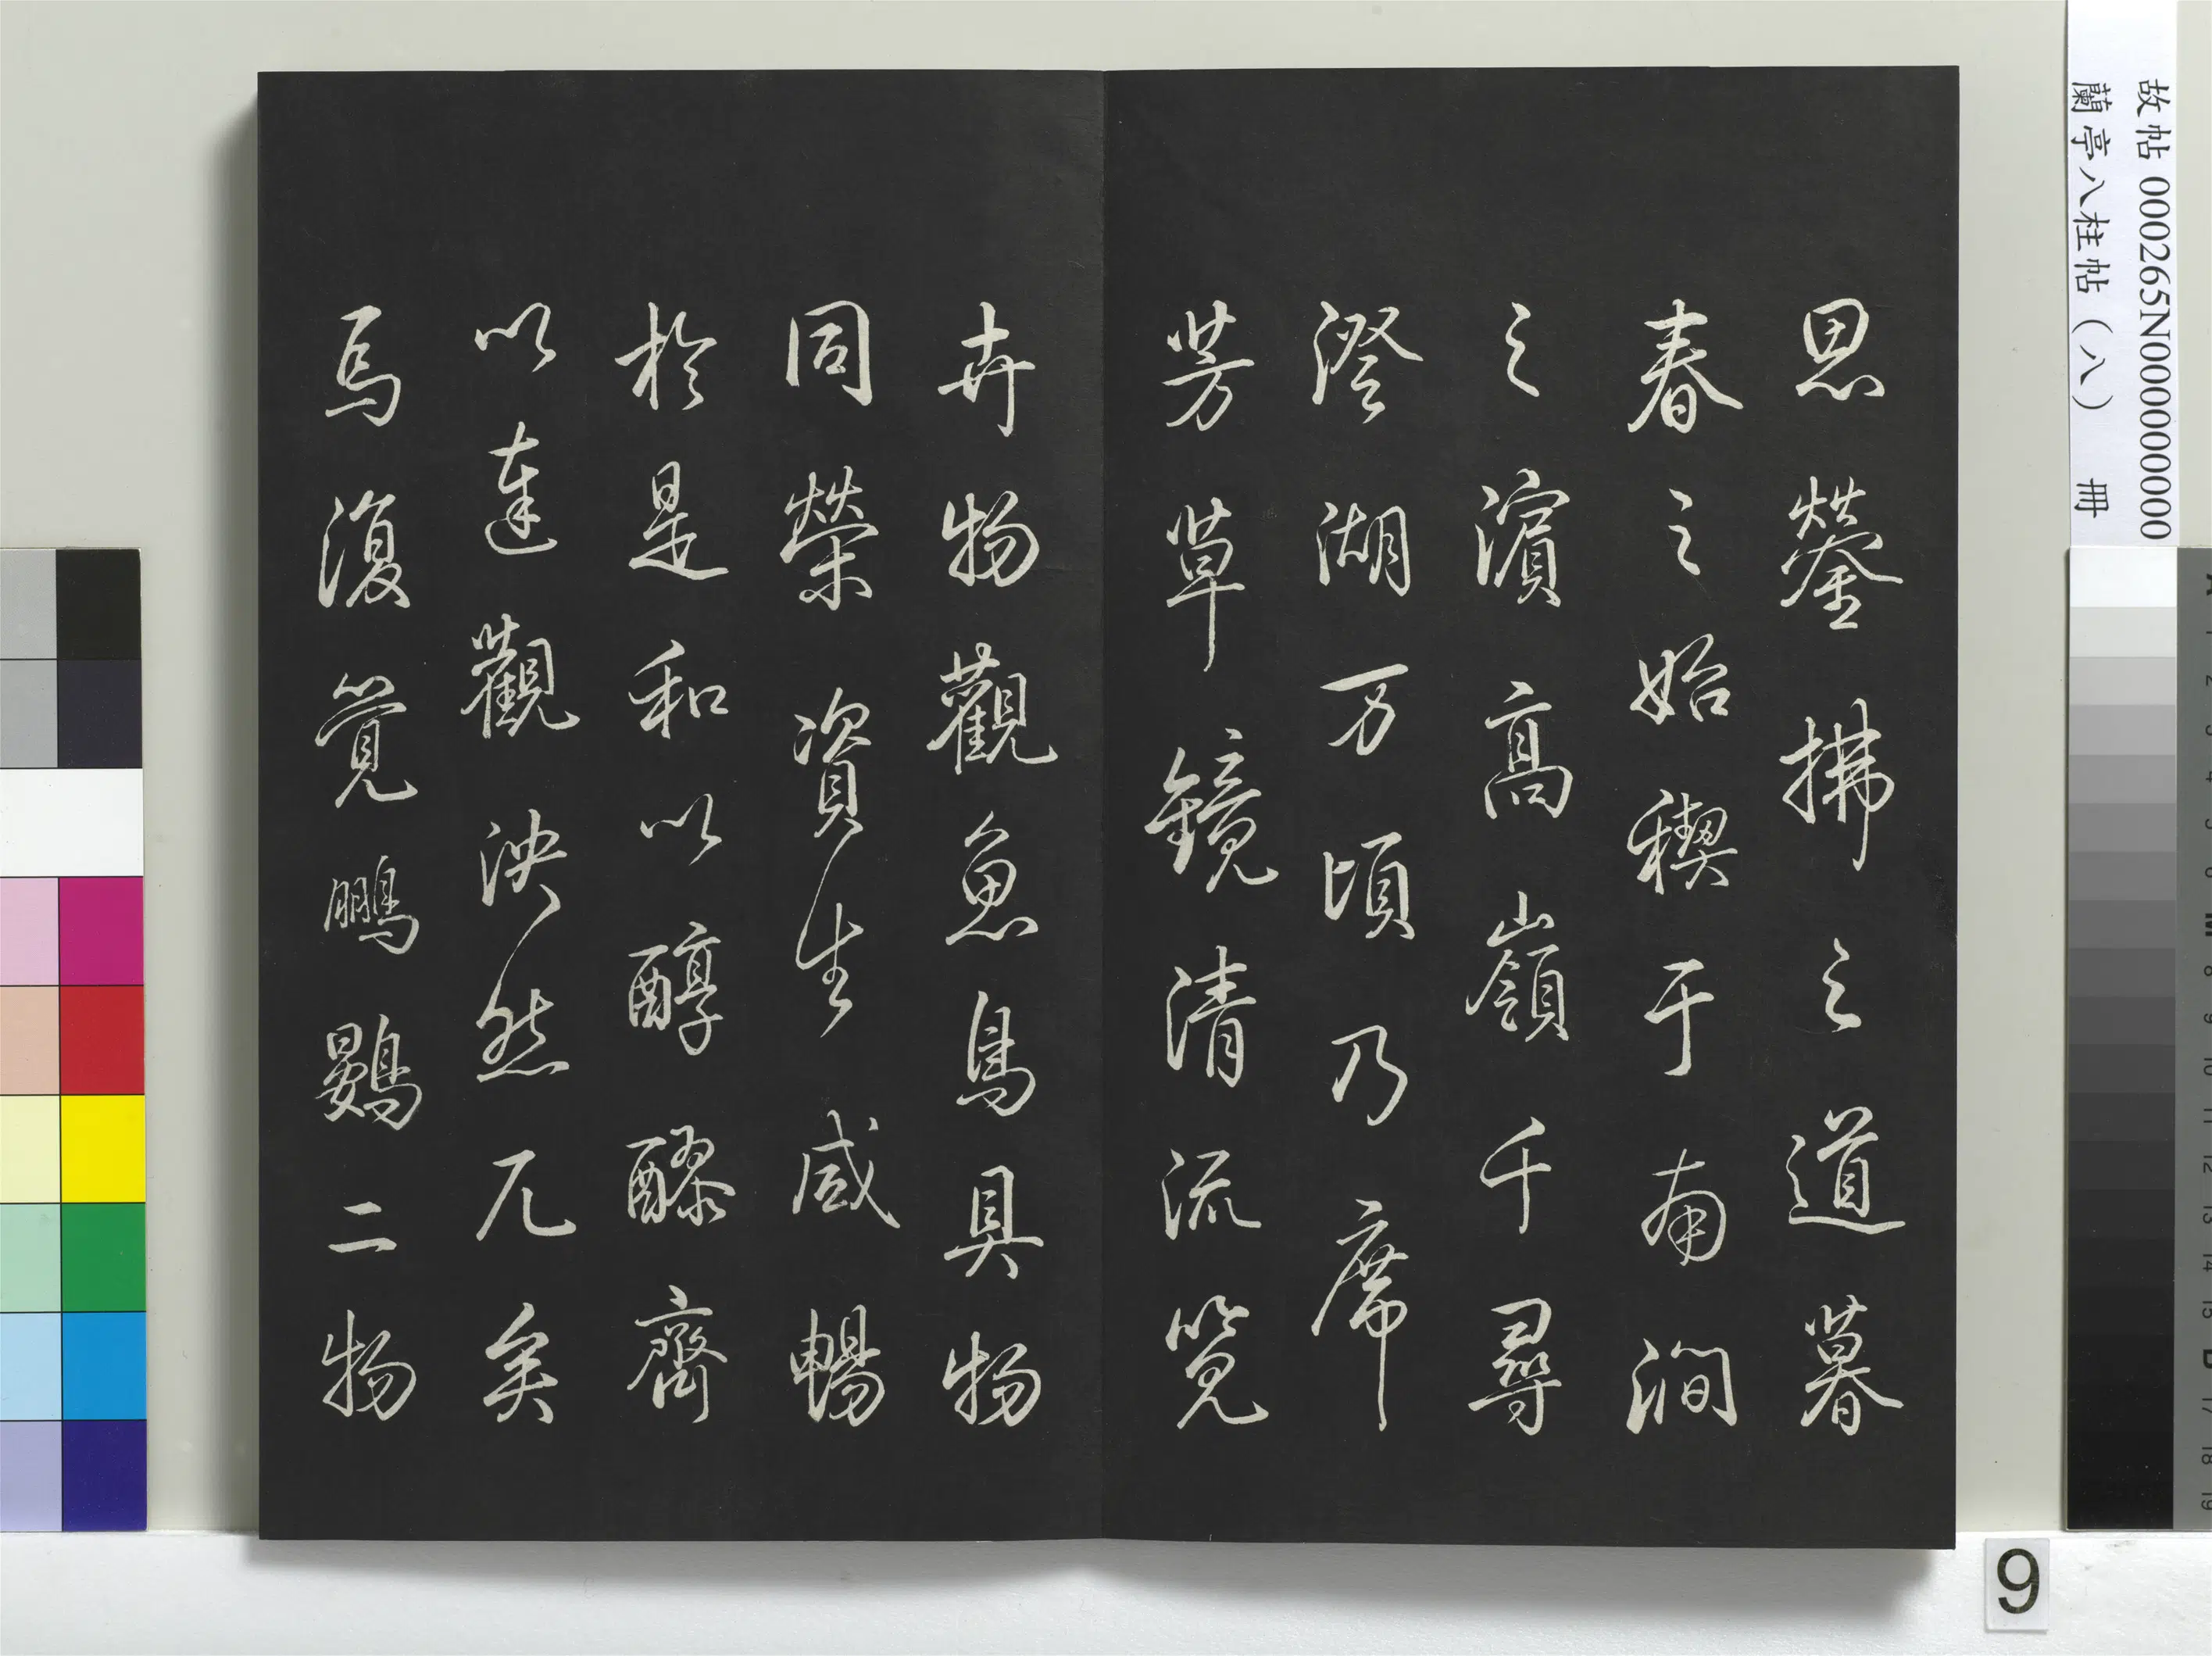 思鎣拂之道暮
春之始稧于南澗
之濱高嶺千尋
澄湖万頃乃席
芳草鏡清流覽
卉物觀魚鳥具物
同榮資生咸暢
於是和以醇醪齊
以達觀泱然兀矣
焉復覺鵬鷃二物
故帖 000265N000000000
蘭亭八柱帖（八） 冊
9